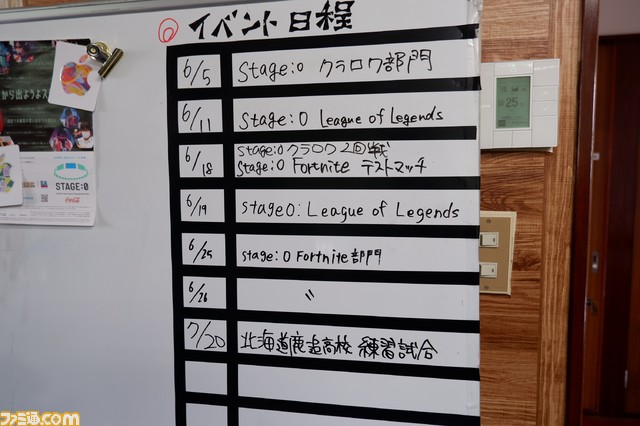 イベント日程
6/5 Stage:0 クラロワ部門
6/11 Stage:0 League of Legends
6/18 Stage:0 クラロワ 2回戦
Stage:0 Fortnite テストマッチ
6/19 Stage0: League of Legends
6/25 stage:0 Fortnite部門
6/26 〃
7/20 北海道鹿追高校 練習試合
から出ようよス
STAGE:0
Coca-Cola
25
ファミ通.com